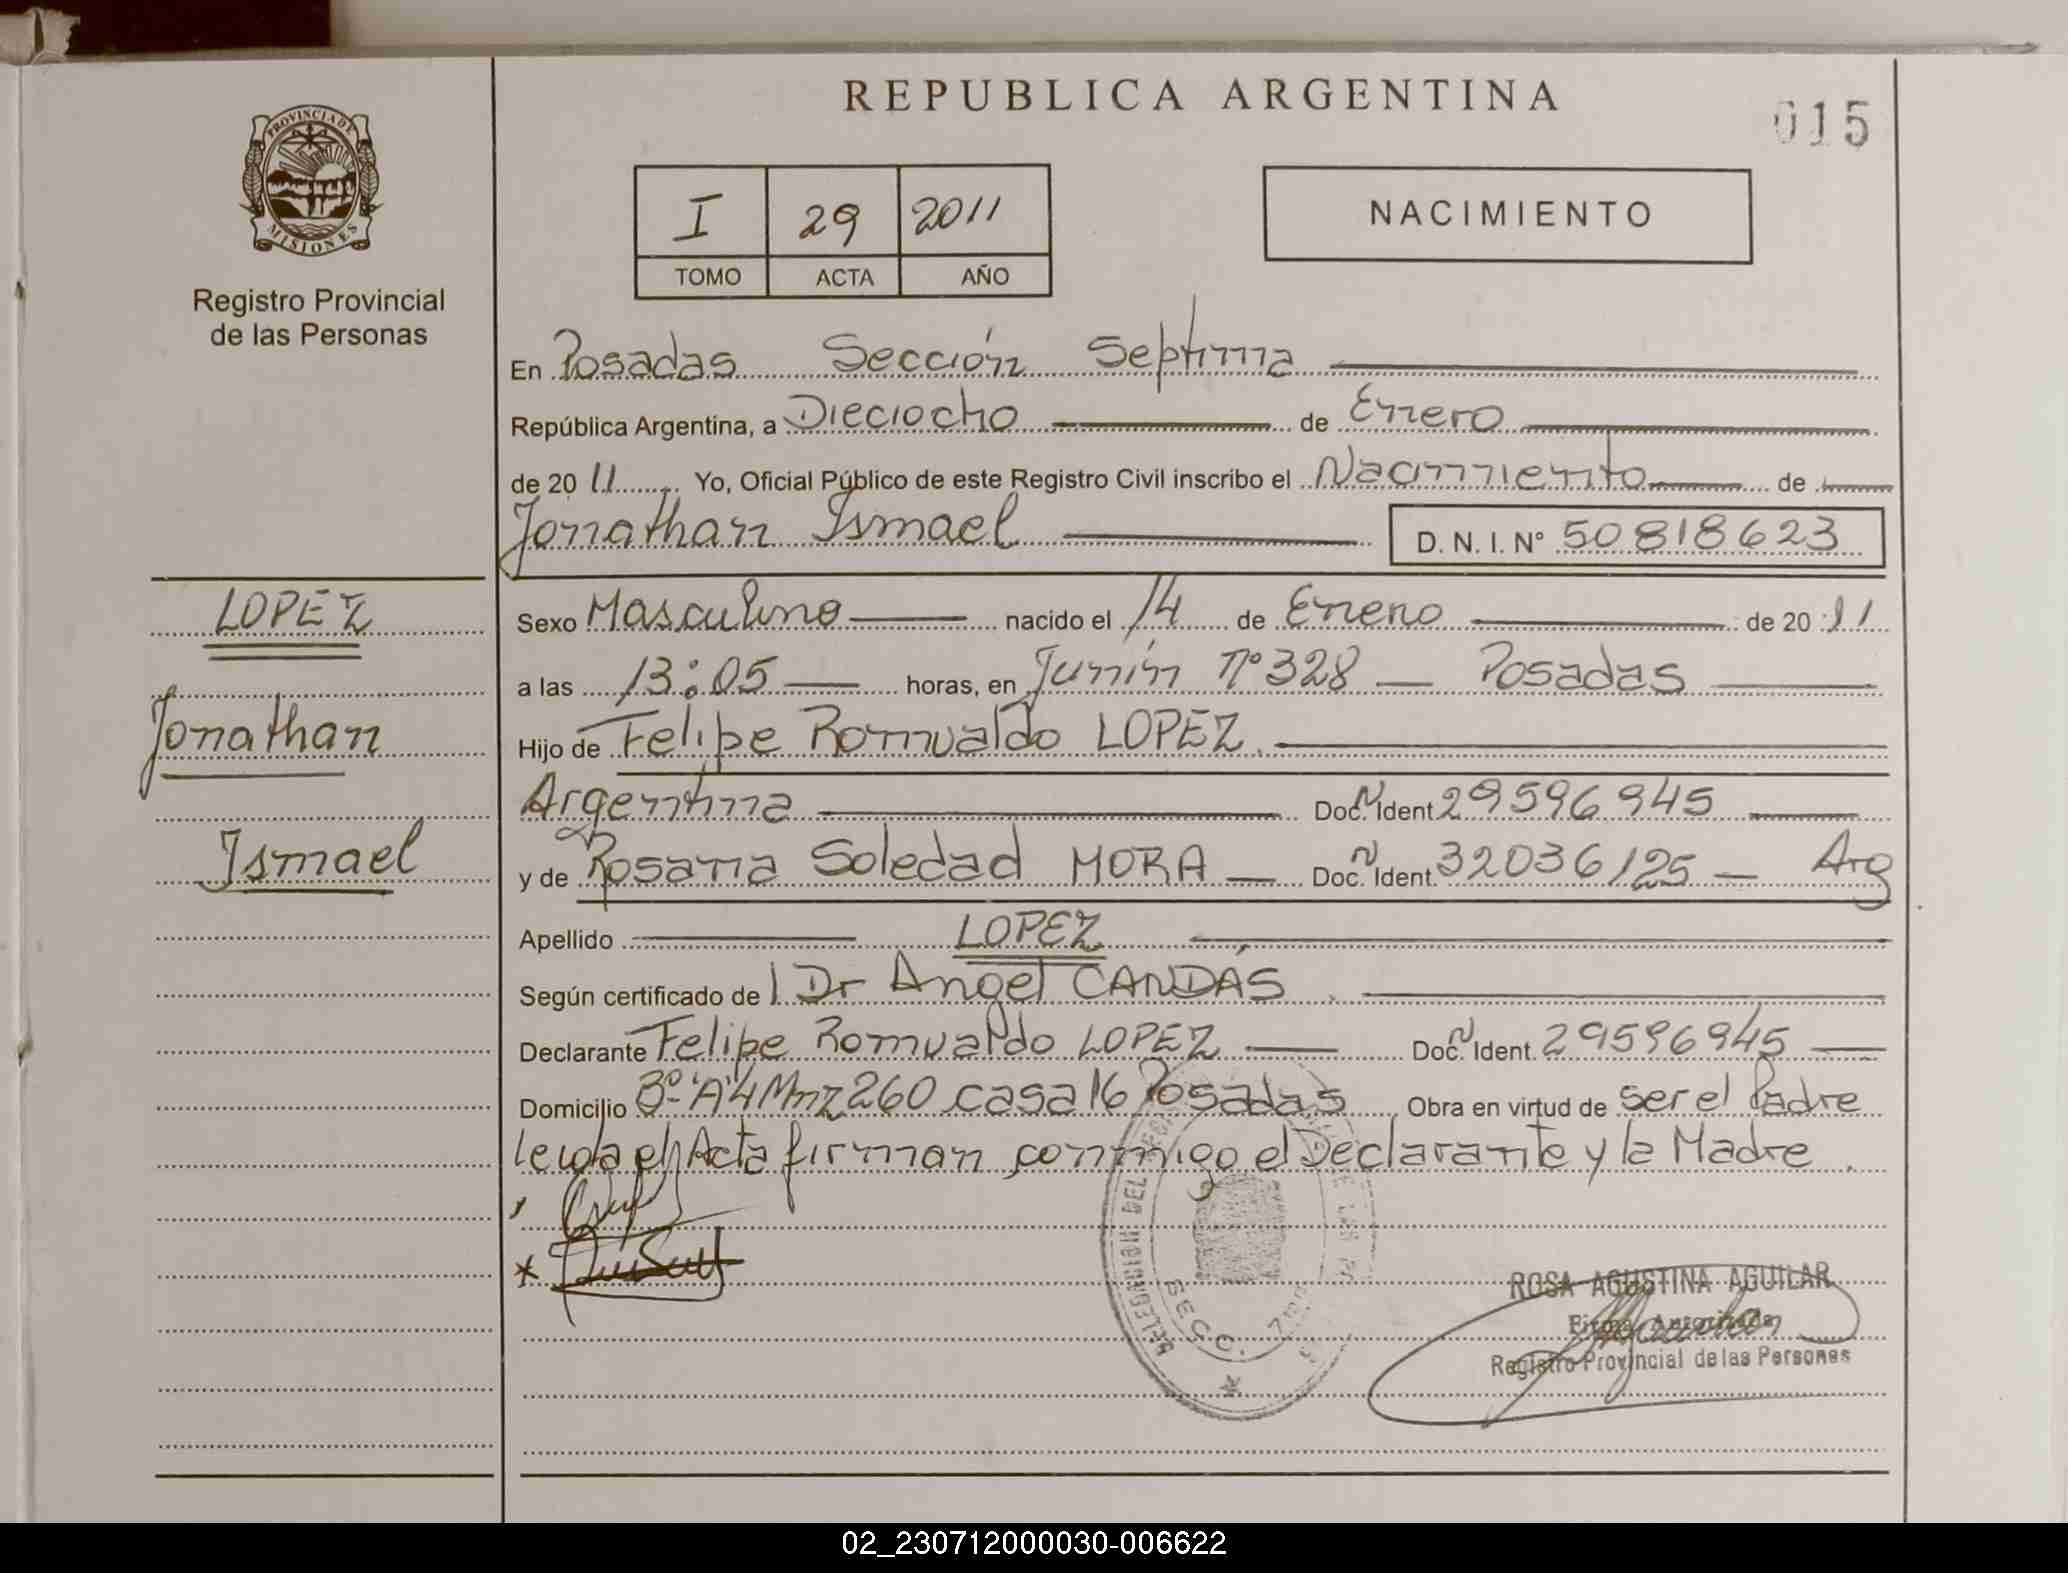 REPUBLICA ARGENTINA
015
PROVINCIA DE MISIONES
Registro Provincial
de las Personas
I 29 2011
TOMO ACTA AÑO
NACIMIENTO
En Posadas Sección Septima
República Argentina, a Dieciocho de Enero
de 2011 Yo, Oficial Público de este Registro Civil inscribo el Nacimiento de
Jonathan Ismael D. N. I. N° 50818623
LOPEZ
Jonathan
Ismael
Sexo Masculino nacido el 14 de Enero de 2011
a las 13:05 horas, en Junín N° 328 — Posadas
Hijo de Felipe Romualdo LOPEZ.
Argentina Doc. N Ident 29596945
y de Rosana Soledad MORA — Doc. N Ident. 32036125 — Arg
Apellido LOPEZ
Según certificado de l Dr Angel CANDÁS
Declarante Felipe Romualdo LOPEZ Doc. N Ident. 29596945
Domicilio B° "A"4 Mnz 260 casa 16 Posadas Obra en virtud de ser el Padre
leida el Acta firman conmigo el Declarante y la Madre.
ROSA AGUSTINA AGUILAR
Firma Autorizada
Registro Provincial de las Personas
02_230712000030-006622